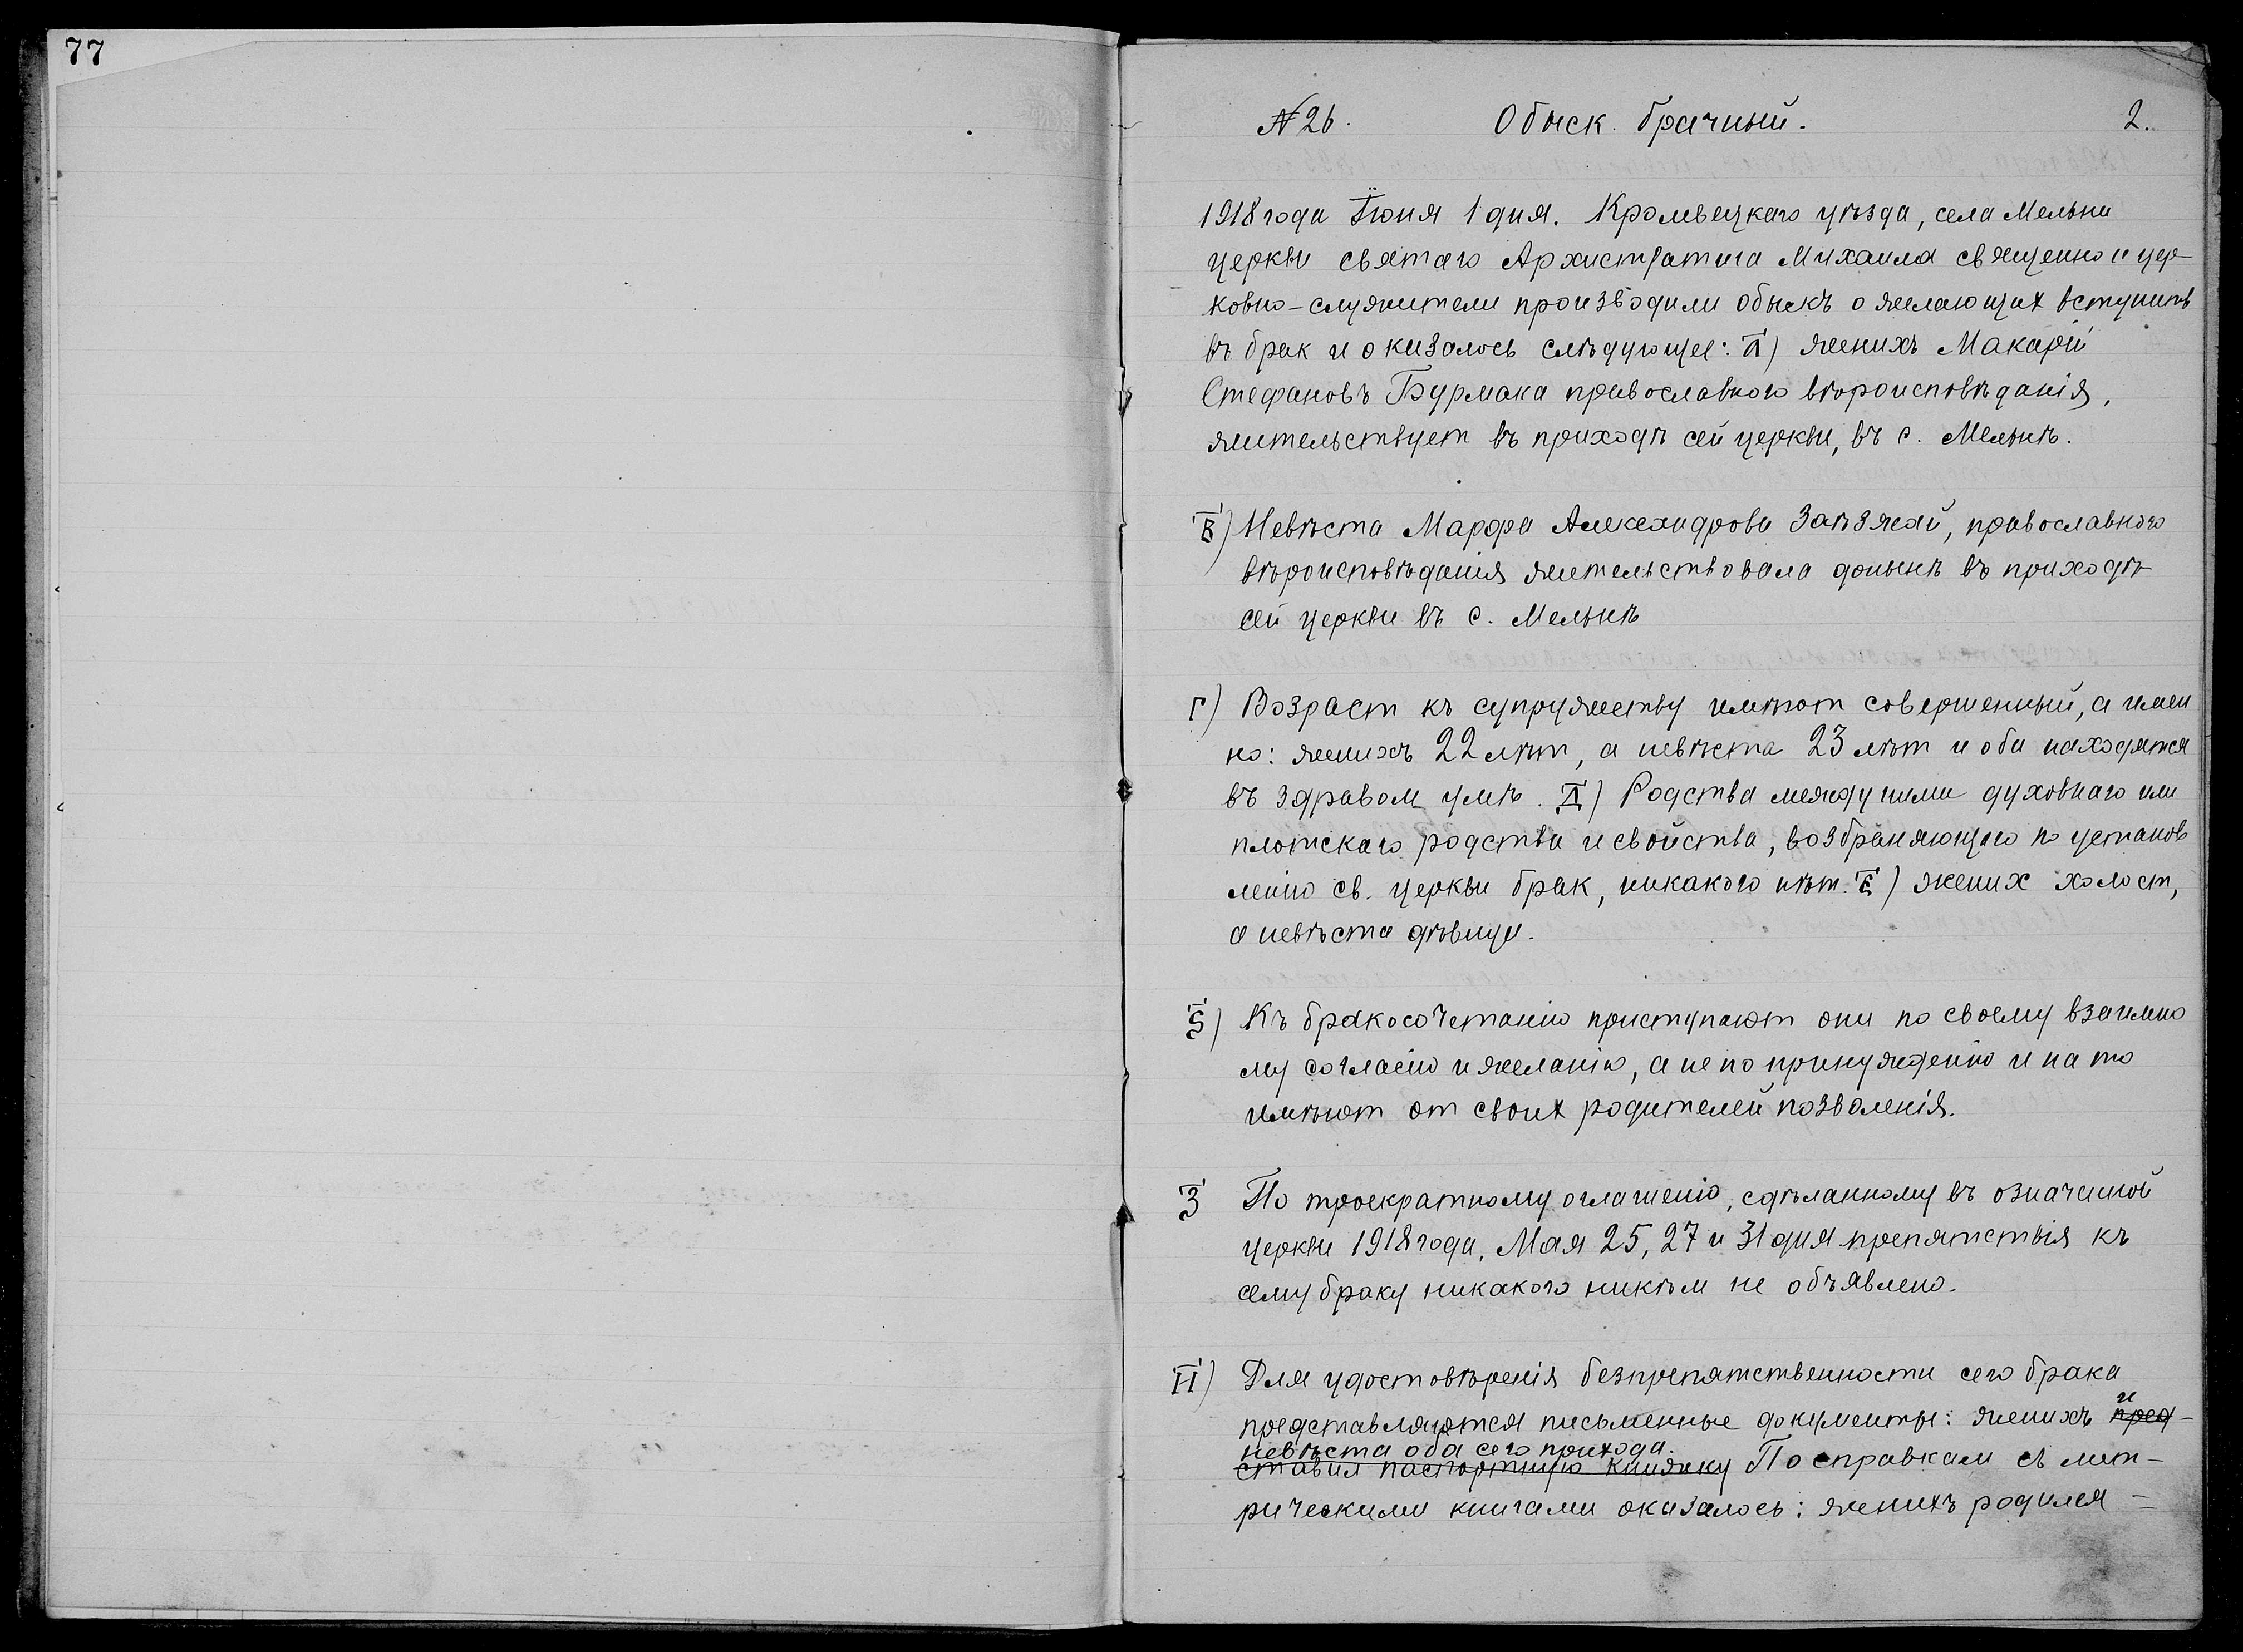 77
№ 26. Обыск брачный. 2.
1918 года Їюня 1 дня. Кролевецкаго уѣзда, села Мельни
церкви святаго Архистратига Михаила священно и цер-
ковно-служители производили обыскъ о желающих вступить
въ брак и оказалось слѣдующее: А) женихъ Макарій
Стефановъ Бурмака православного вѣроисповѣданія,
жительствует въ приходѣ сей церкви, въ с. Мельнѣ.
В) Невѣста Марфа Александрова православного
вѣроисповѣданія жительствовала донынѣ въ приходѣ
сей церкви въ с. Мельнѣ
Г) Возраст къ супружеству имѣют совершенный, а имен
но: женихъ 22 лѣт, а невѣста 23 лѣт и оба находятся
въ здравом умѣ. Д) Родства между ними духовнаго или
плотскаго родства и свойства, возбраняющаго по установ
ленію св. церкви брак, никакого нѣт. Е) жених холост,
а невѣста дѣвица.
Ѕ) Къ бракосочетанію приступают они по своему взаимно
му согласію и желанію, а не по принужденію и на то
имѣют от своих родителей позволенія.
З По троекратному оглашенію, сдѣланному въ означенной
церкви 1918 года, Мая 25, 27 и 31 дня препятствія къ
сему браку никакого никѣм не объявлено.
И) Для удостовѣренія безпрепятственности сего брака
представляются письменные документы: женихъ и пред-
невѣста оба сего прихода.
ставил паспортную книжку По справкам съ мет-
рическими книгами оказалось: женихъ родился -